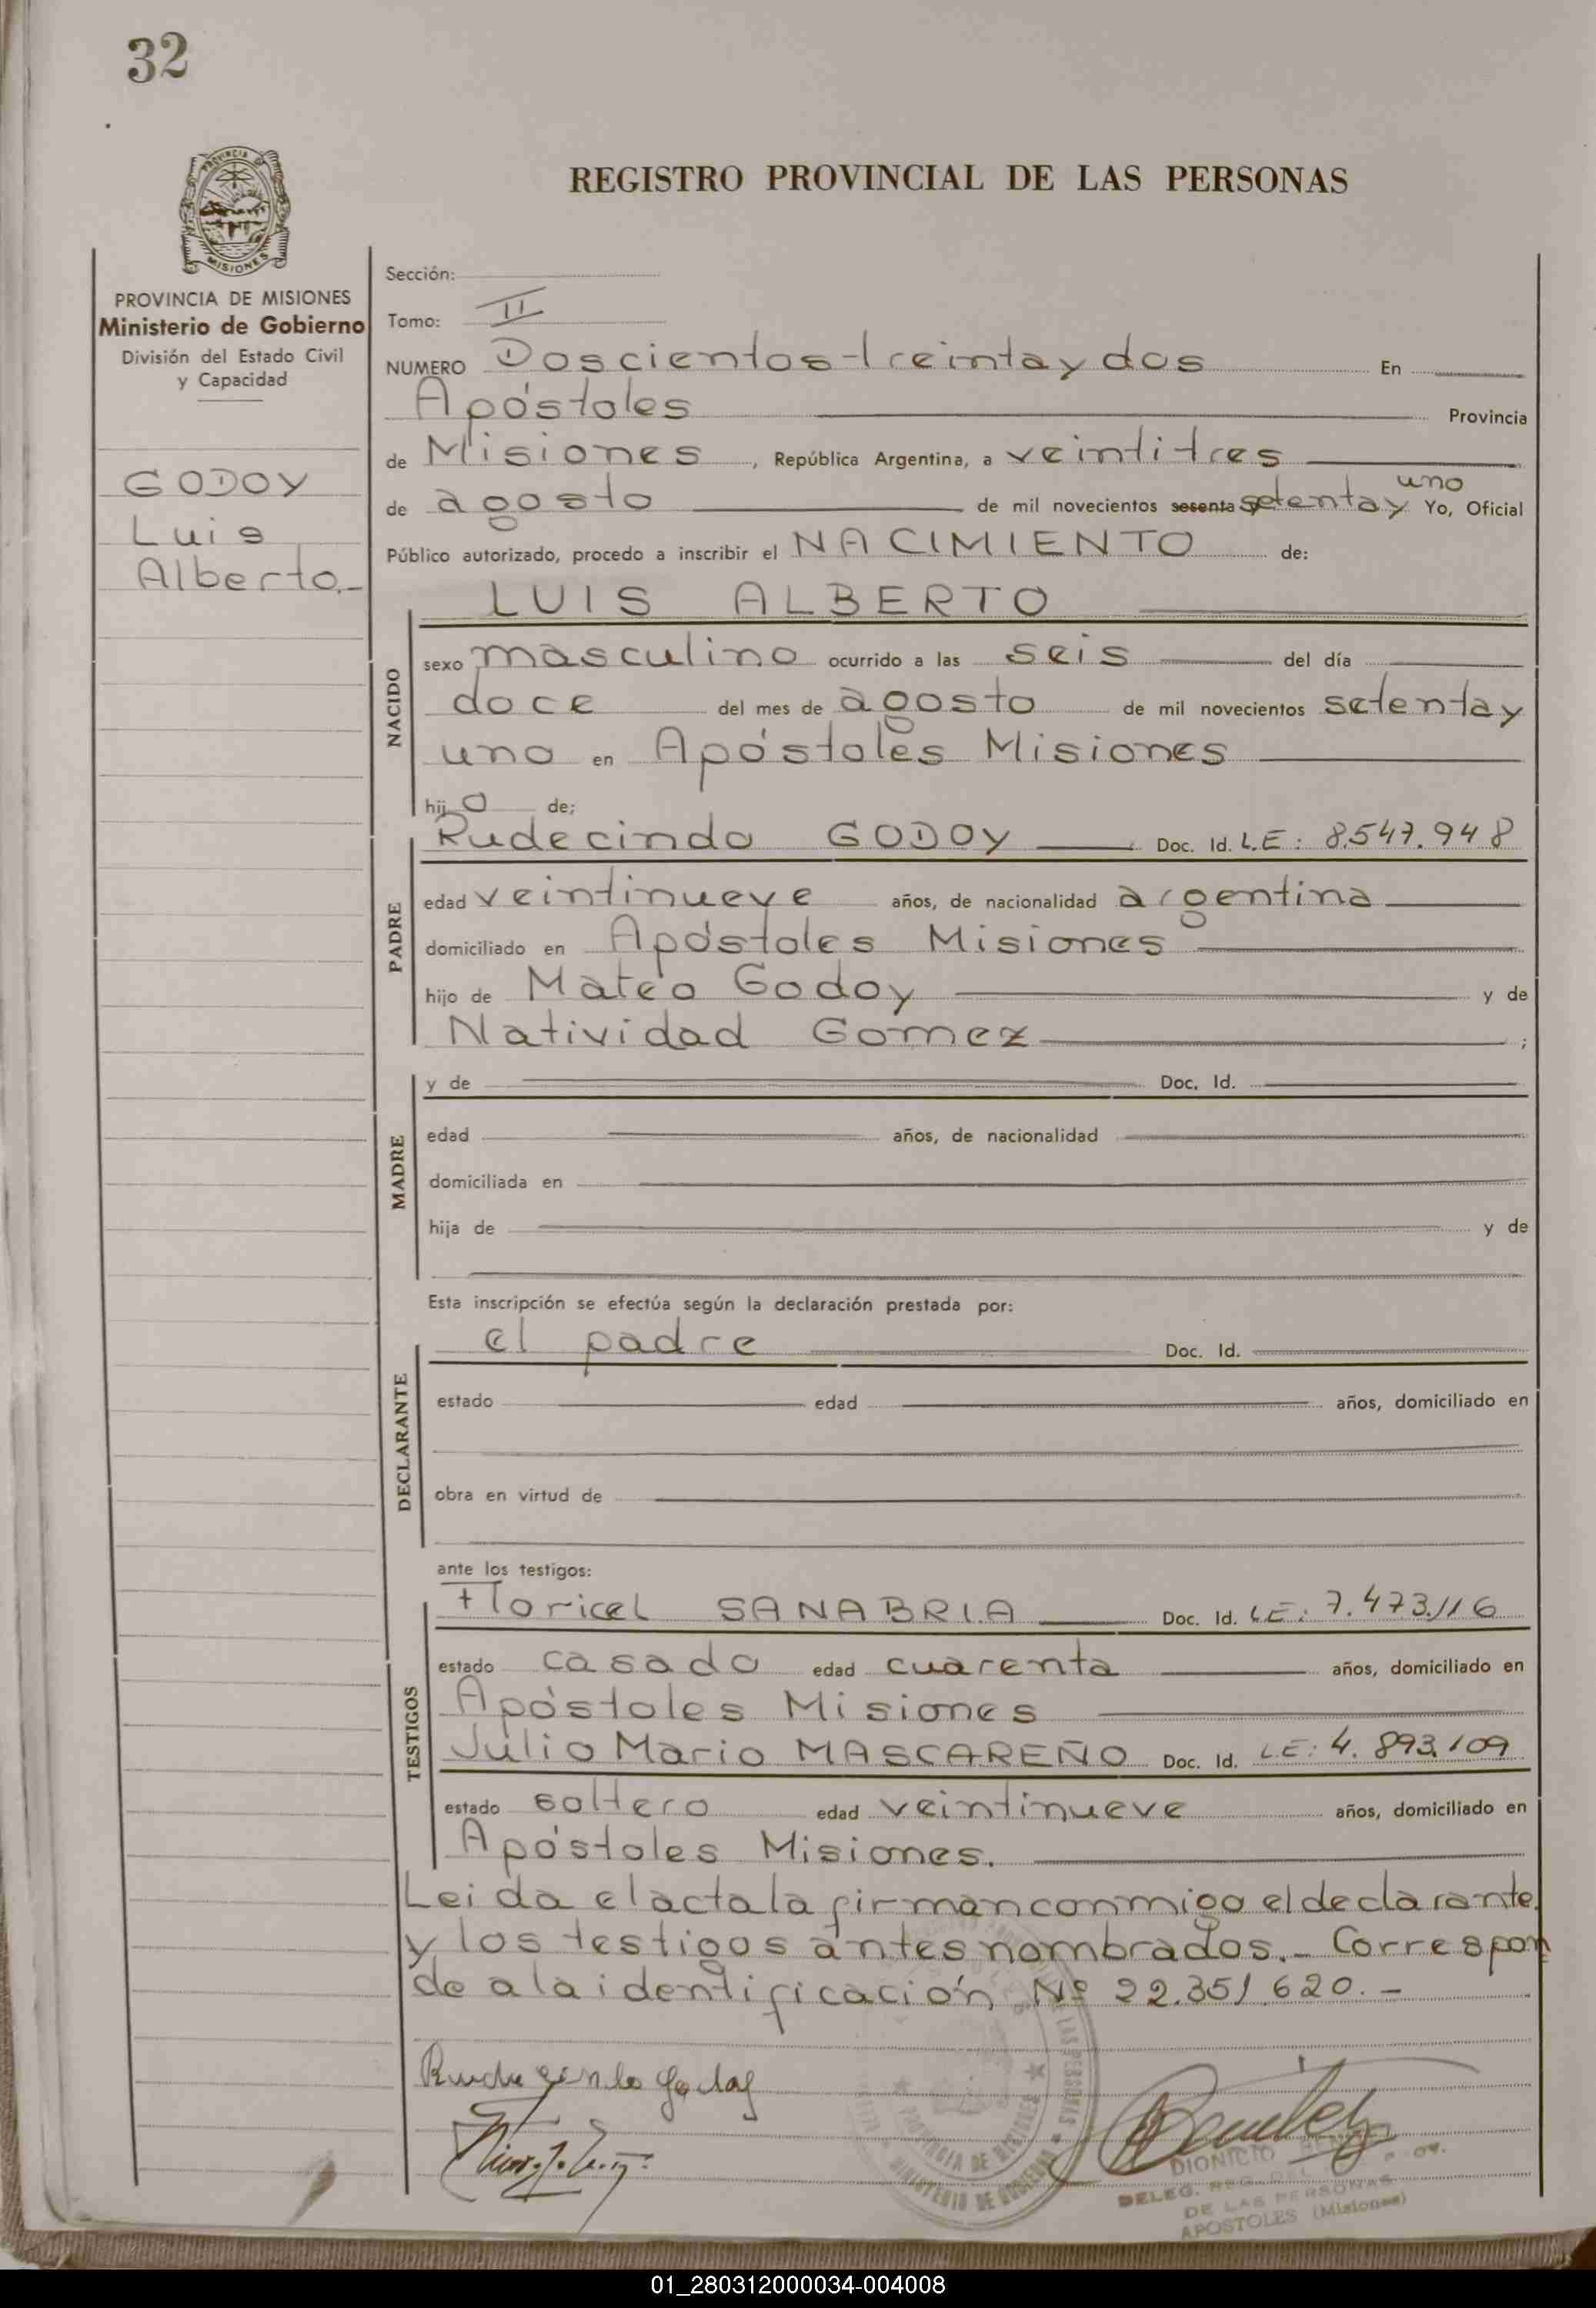 32
PROVINCIA DE MISIONES
Ministerio de Gobierno
División del Estado Civil
y Capacidad
GODOY
Luis
Alberto.-
REGISTRO PROVINCIAL DE LAS PERSONAS
Sección:
Tomo: II
NUMERO Doscientos treinta y dos En
Apóstoles Provincia
de Misiones, República Argentina, a veintitres
uno
de agosto de mil novecientos sesenta setenta y Yo, Oficial
Público autorizado, procedo a inscribir el NACIMIENTO de:
LUIS ALBERTO
NACIDO
sexo masculino ocurrido a las seis del día
doce del mes de agosto de mil novecientos setenta y
uno en Apóstoles Misiones
hijo de;
PADRE
Rudecindo GODOY Doc. Id. L.E: 8.547.948
edad veintinueve años, de nacionalidad argentina
domiciliado en Apóstoles Misiones
hijo de Mateo Godoy y de
Natividad Gomez ;
MADRE
y de Doc. Id.
edad años, de nacionalidad
domiciliada en
hija de y de
Esta inscripción se efectúa según la declaración prestada por:
DECLARANTE
el padre Doc. Id.
estado edad años, domiciliado en
obra en virtud de
ante los testigos:
TESTIGOS
Floricel SANABRIA Doc. Id. L.E: 7.473.116
estado casado edad cuarenta años, domiciliado en
Apóstoles Misiones
Julio Mario MASCAREÑO Doc. Id. L.E: 4.893.109
estado soltero edad veintinueve años, domiciliado en
Apóstoles Misiones.
Leida el acta la firman conmigo el declarante
y los testigos antes nombrados.- Correspon
de a la identificación Nº 22.351.620.-
PROVINCIA DE MISIONES
MINISTERIO DE GOBIERNO
DE LAS PERSONAS
DIONICIO
DELEG. REG.
DE LAS PERSONAS
APOSTOLES (Misiones)
01_280312000034-004008